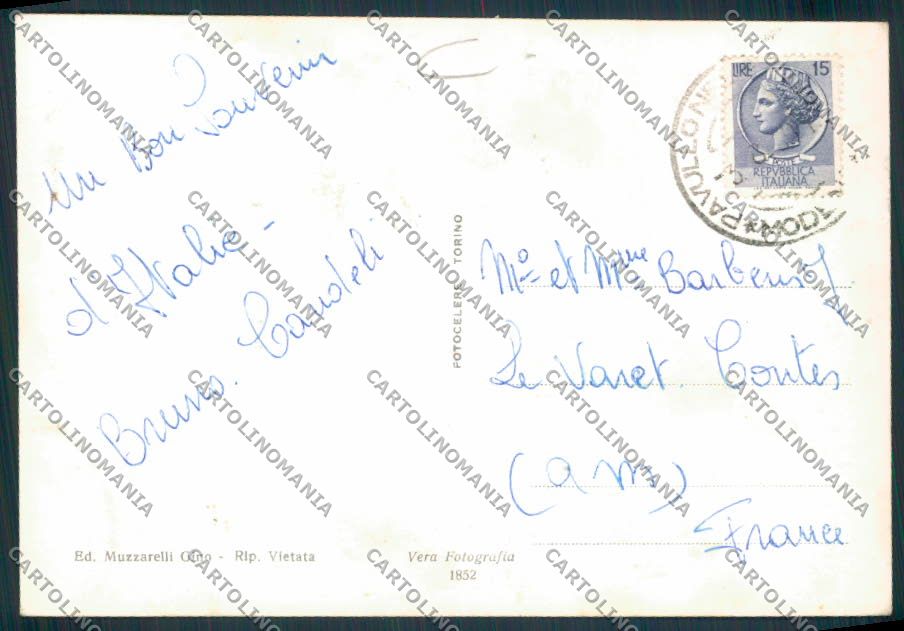 Un Bon Souvenir
d'Italie -
Bruno. Candeli
LIRE 15
POSTE
REPVBBLICA
ITALIANA
PAVULLO NEL
MODENA
Mr et Mme Barberis J
Le Varet. Contes
(am)
France
FOTOCELERE TORINO
Ed. Muzzarelli Gino - Rip. Vietata
Vera Fotografia
1852
CARTOLINOMANIA